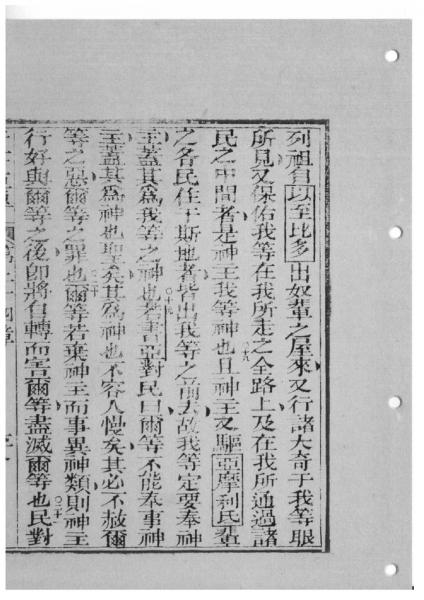 列祖自以至比多出奴輩之屋來又行諸大奇于我等眼
所見又保佑我等在我所走之全路上及在我所通過諸
民之中間者是神主我等神也且神主又驅亞摩利民輩
之各民住于斯地者皆出我等之前去故我等定要奉神
主蓋其為我等之神也若書亞對民曰爾等不能奉事神
主蓋其為神也聖矣其為神也不容人慢矣其必不赦爾
等之惡爾等之罪也爾等若棄神主而事異神類則神主
行好與爾等之後卽將自轉而害爾等盡滅爾等也民對